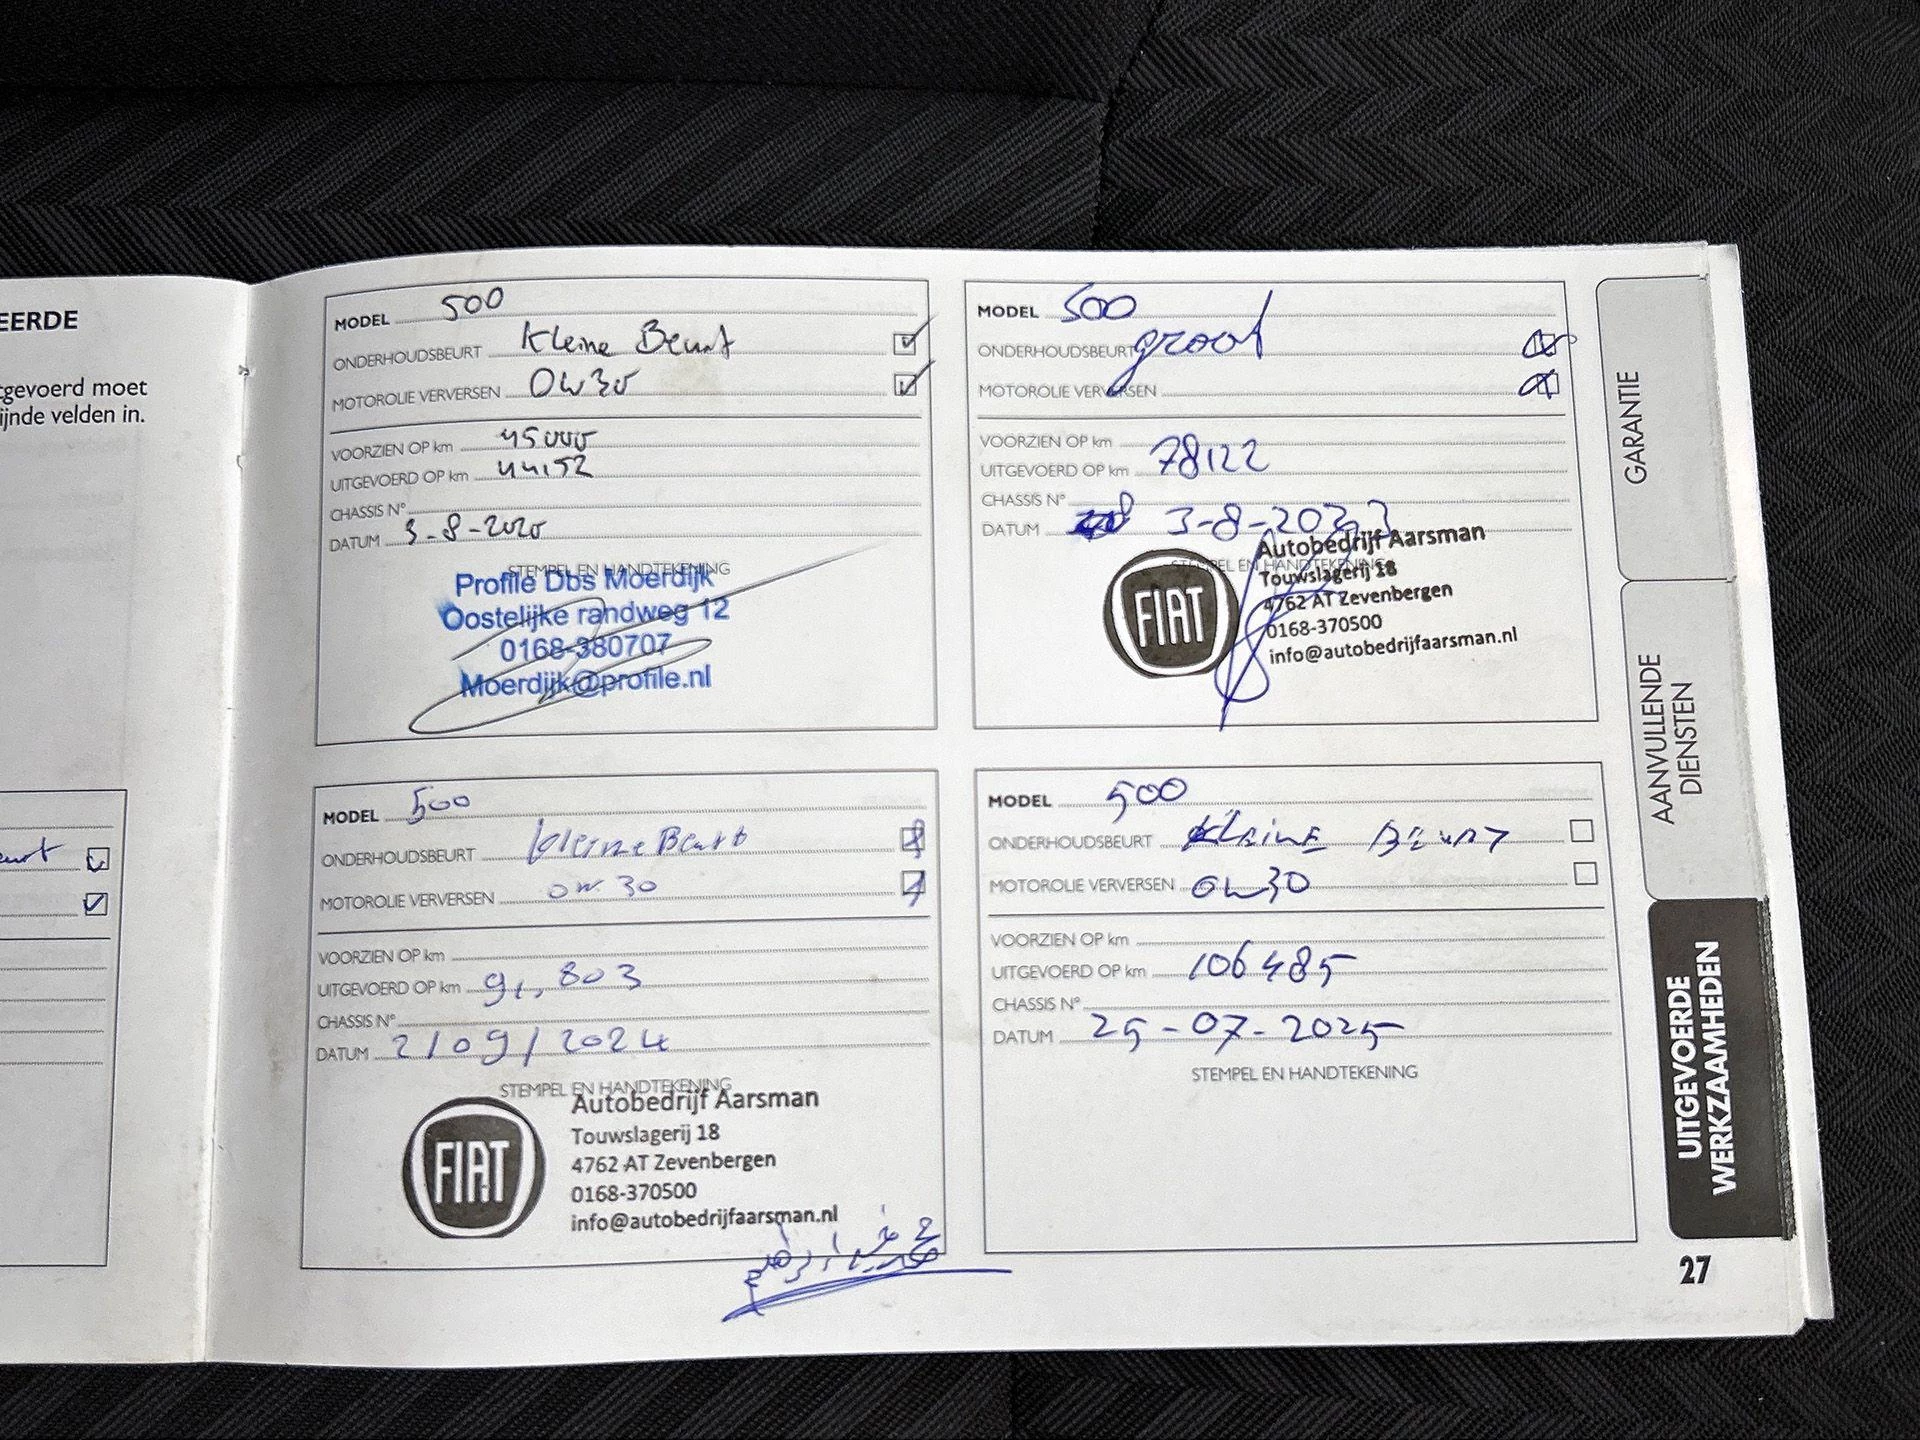 EERDE
tgevoerd moet
ijnde velden in.
MODEL 500
ONDERHOUDSBEURT Kleine Beurt
MOTOROLIE VERVERSEN 0w30
VOORZIEN OP km 45000
UITGEVOERD OP km 44152
CHASSIS N°
DATUM 3-8-2020
STEMPEL EN HANDTEKENING
Profile Dbs Moerdijk
Oostelijke randweg 12
0168-380707
Moerdijk@profile.nl
MODEL 500
ONDERHOUDSBEURT groot
MOTOROLIE VERVERSEN
VOORZIEN OP km
UITGEVOERD OP km 78122
CHASSIS N°
DATUM 3-8-2023
STEMPEL EN HANDTEKENING
FIAT
Autobedrijf Aarsman
Touwslagerij 18
4762 AT Zevenbergen
0168-370500
info@autobedrijfaarsman.nl
MODEL 500
ONDERHOUDSBEURT kleine Beurt
MOTOROLIE VERVERSEN 0w30
VOORZIEN OP km
UITGEVOERD OP km 91,803
CHASSIS N°
DATUM 2/09/2024
STEMPEL EN HANDTEKENING
FIAT
Autobedrijf Aarsman
Touwslagerij 18
4762 AT Zevenbergen
0168-370500
info@autobedrijfaarsman.nl
MODEL 500
ONDERHOUDSBEURT KLEINE BEURT
MOTOROLIE VERVERSEN 0w30
VOORZIEN OP km
UITGEVOERD OP km 106485
CHASSIS N°
DATUM 25-07-2025
STEMPEL EN HANDTEKENING
GARANTIE
AANVULLENDE
DIENSTEN
UITGEVOERDE
WERKZAAMHEDEN
27